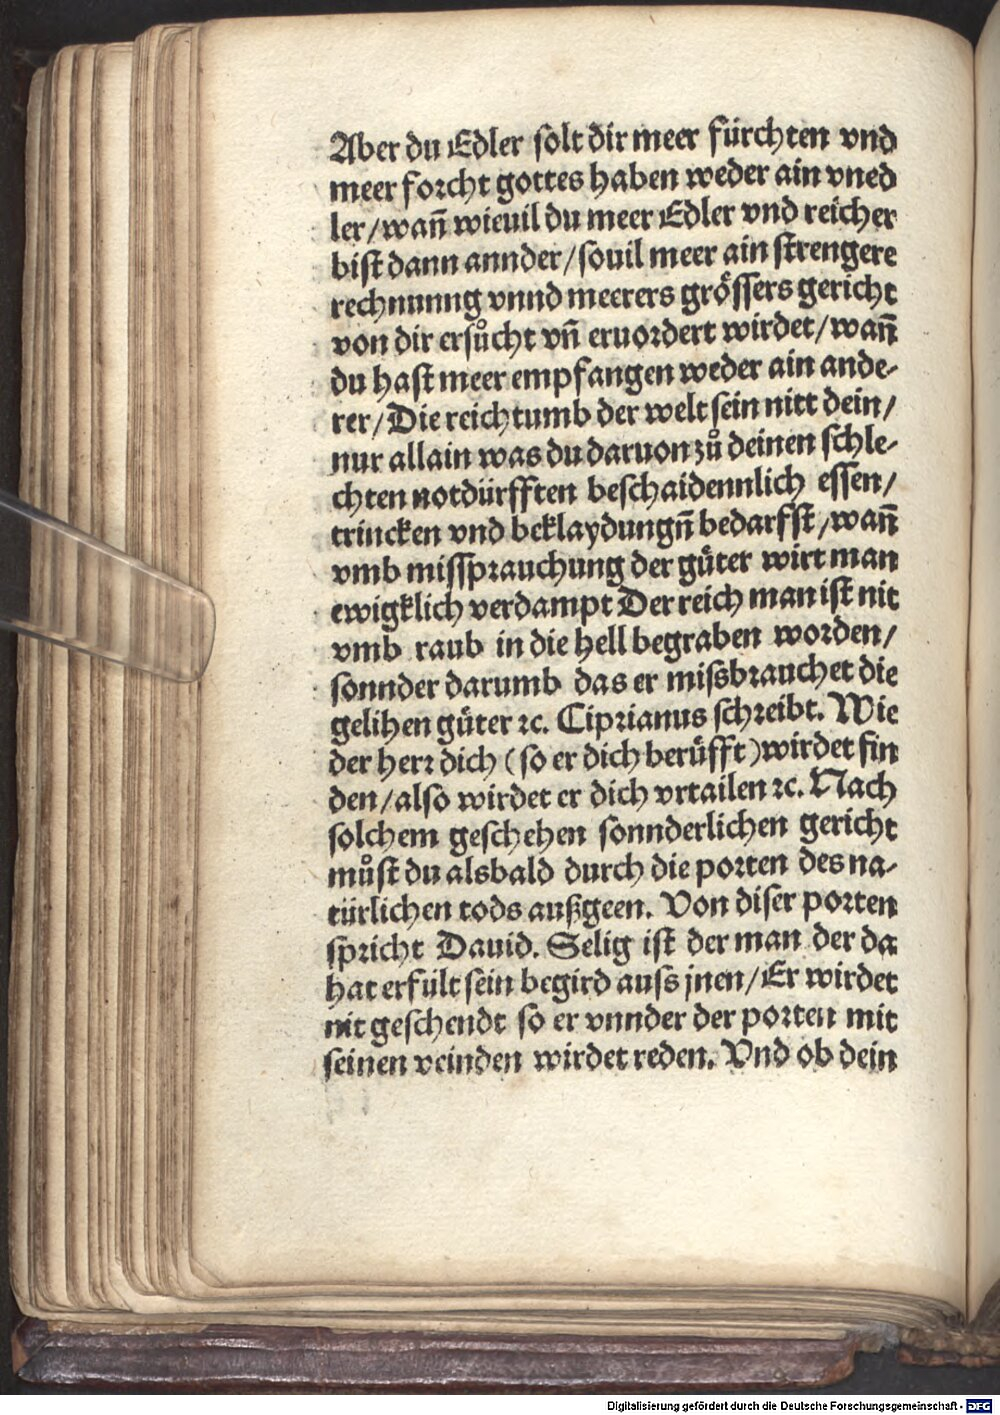 Aber du Edler solt dir meer fürchten vnd
meer forcht gottes haben weder ain vned
ler/wañ wieuil du meer Edler vnd reicher
bist dann annder/souil meer ain strengere
rechnunng vnnd meerers grössers gericht
von dir ersůcht vñ eruordert wirdet/wañ
du hast meer empfangen weder ain ande-
rer/Die reichtumb der welt sein nitt dein/
nur allain was du daruon zů deinen schle-
chten notdürfften beschaidennlich essen/
trincken vnd beklaydungñ bedarfst/wañ
vmb missprauchung der güter wirt man
ewigklich verdampt Der reich man ist nit
vmb raub in die hell begraben worden/
sonnder darumb das er missbrauchet die
gelihen güter ⁊c. Ciprianus schreibt. Wie
der herr dich (so er dich berüfft) wirdet fin
den/also wirdet er dich vrtailen ⁊c. Nach
solchem geschehen sonnderlichen gericht
můst du alsbald durch die porten des na-
türlichen tods außgeen. Von diser porten
spricht Dauid. Selig ist der man der da
hat erfült sein begird auss jnen/Er wirdet
nit geschendt so er vnnder der porten mit
seinen veinden wirdet reden. Vnd ob dein
Digitalisierung gefördert durch die Deutsche Forschungsgemeinschaft - DFG